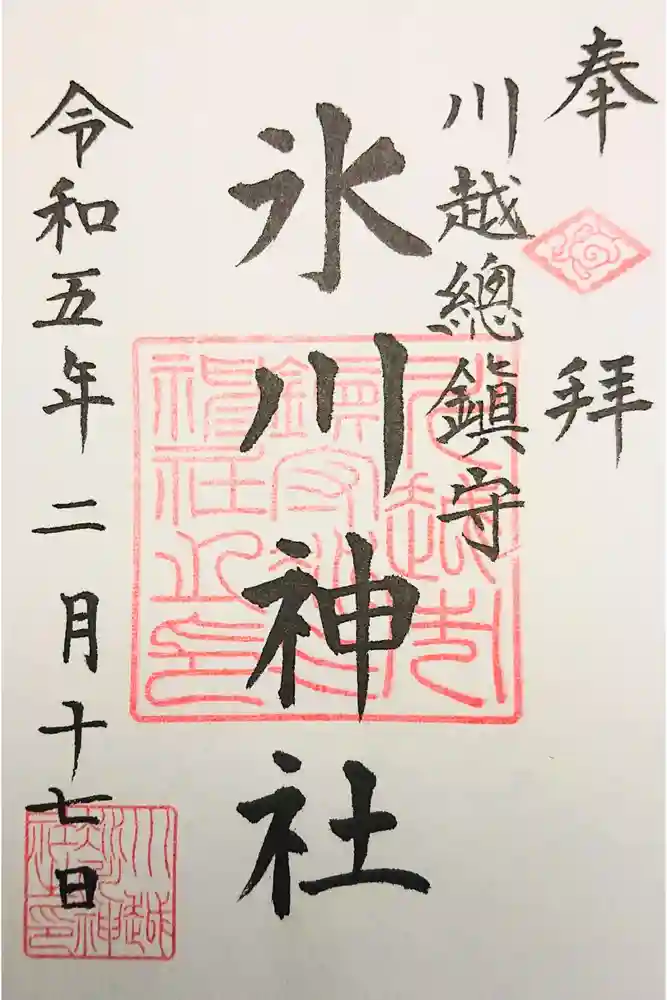 奉拜
川越總鎮守
氷川神社
令和五年二月十七日